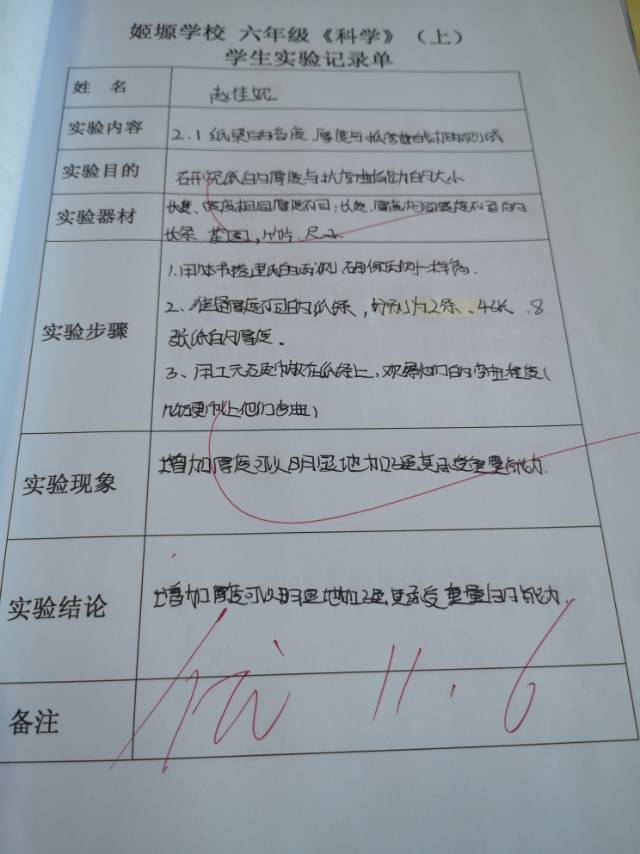 姬塬学校 六年级《科学》（上）
学生实验记录单
姓 名 赵佳妮
实验内容 2.1纸梁的宽度、厚度与抗弯曲能力的测试
实验目的 研究纸的厚度与抗弯曲能力的大小
实验器材 长度、宽度相同厚度不同；长度、厚度相同宽度不同的
长条、垫圈、尺子
实验步骤
1.用体书搭里
2、准备厚度不同的纸条，分别为2张、4张、8
张纸的厚度。
3、用1元硬币放在纸条上，观察他们的弯曲程度（
几枚硬币上他们弯曲）
实验现象 增加厚度可以明显地加强其承受重量能力.
实验结论 增加厚度可以明显地加强其承受重量的能力.
优 11.6
备注